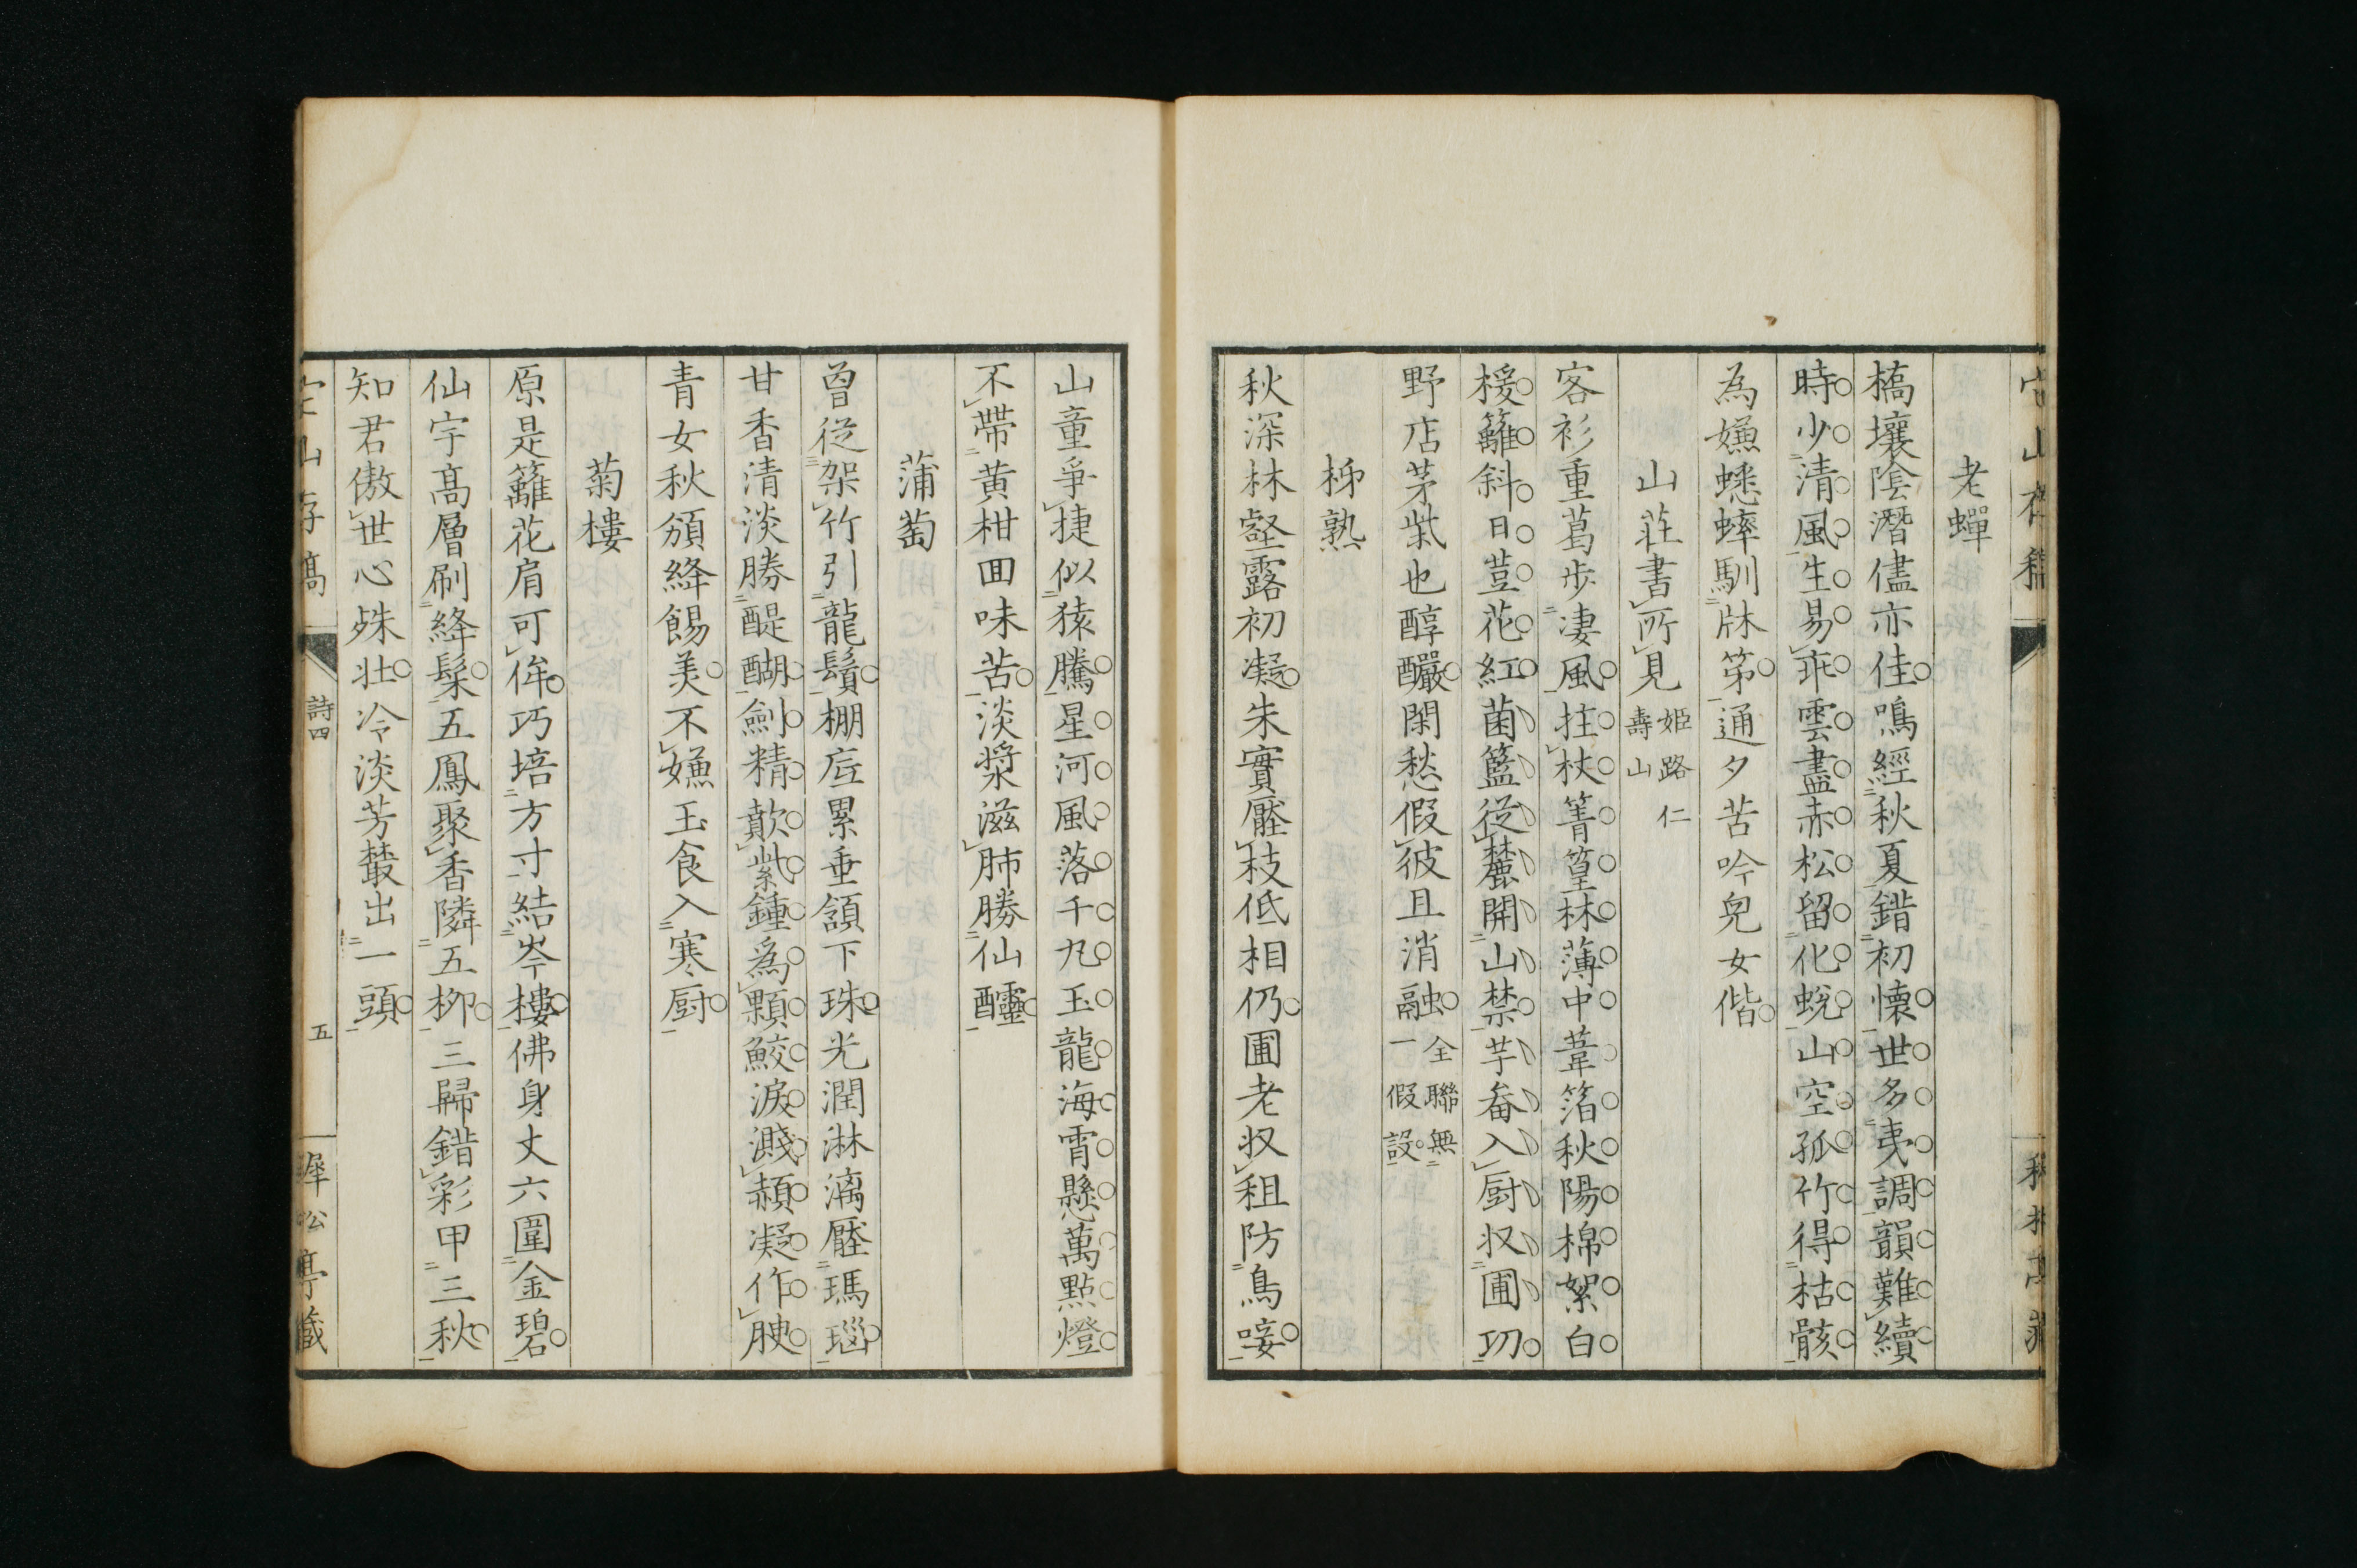 老蟬
槁壤陰潛儘亦佳鳴經秋夏錯初懷世多夷調韻難續
時少清風生易乖雲盡赤松留化蛻山空孤竹得枯骸
為嫌蟋蟀馴牀第一通夕苦吟兒女偕
山莊書所見姬路仁
壽山
客衫重葛步凄風拄杖箐篁林薄中葦箔秋陽棉絮白
槿籬斜日荳花紅菌籃從麓開山禁芋畚入厨收圃功
野店茅柴也醇釅閑愁假彼且消融全聯無
一假設
柹熟
秋深林壑露初凝朱實壓枝低相仍圃老收租防鳥唼
山童爭捷似猿騰星河風落千丸玉龍海霄懸萬點燈
不帶黃柑回味苦淡漿滋肺勝仙醽
蒲萄
曾從架竹引龍鬚棚底累垂頷下珠光潤淋漓壓瑪瑙
甘香清淡勝醍醐劍精歕紫鍾為顆鮫淚濺赬凝作腴
青女秋頒絳餳美不嫌玉食入寒厨
菊樓
原是籬花肩可侔巧培方寸結岑樓佛身丈六圍金碧
仙宇高層刷絳髹五鳳聚香隣五柳三歸錯彩甲三秋
知君傲世心殊壯冷淡芳叢出一頭
山存稿
詩四
五
犀松亭藏